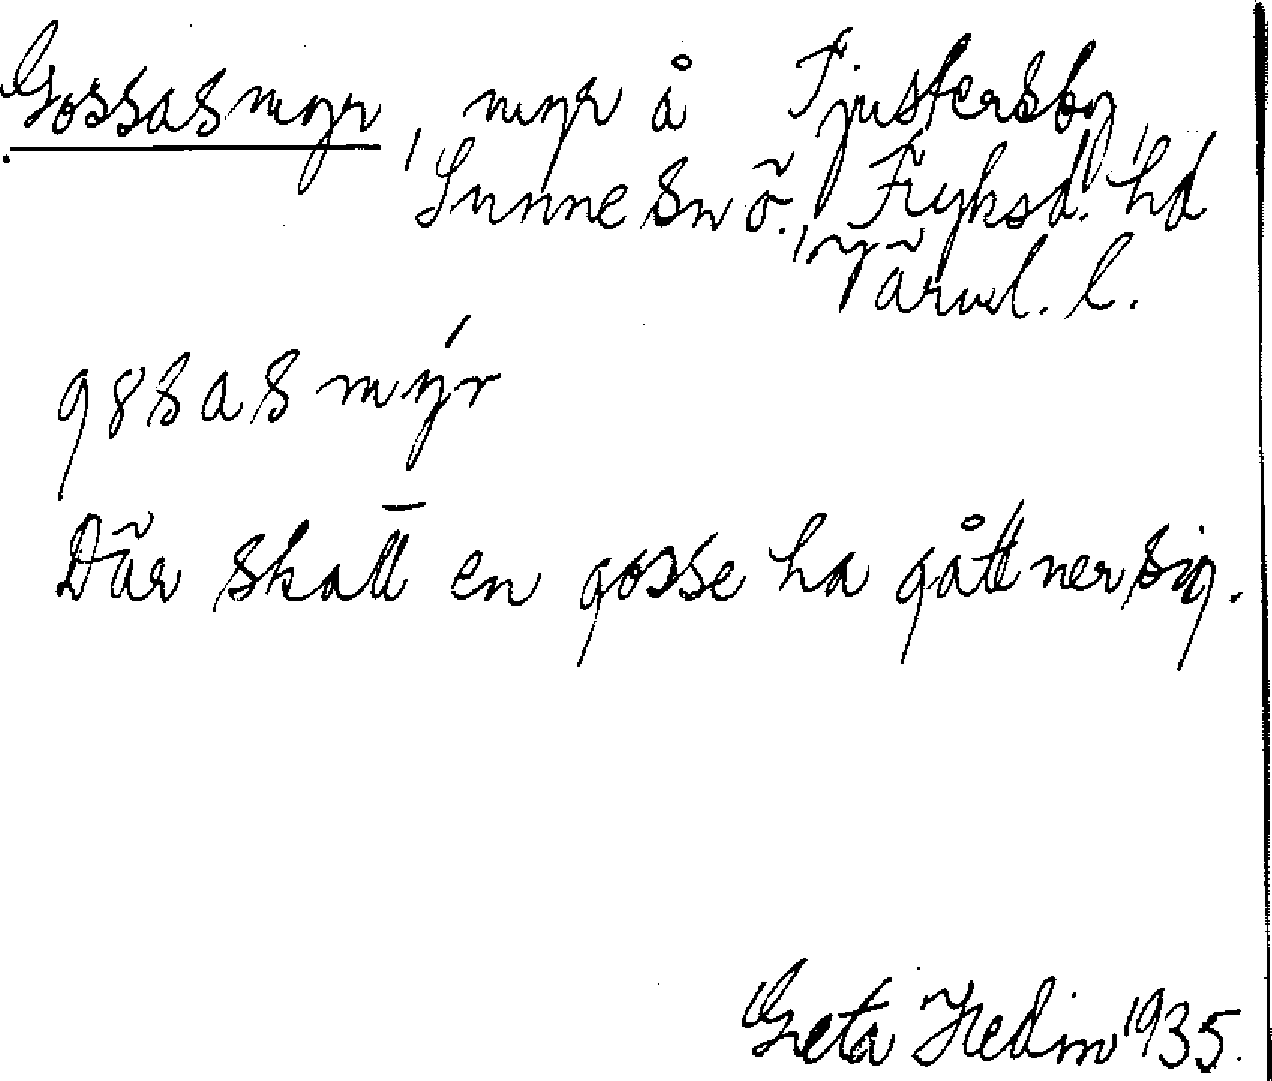 Gossasmyr, myr å Tjustersby,
Sunne sn ö., Fryksd. hd
Värml. l.
g8sasmýr
Där skall en gosse ha gått ner sig.
Greta Hedin 1935.